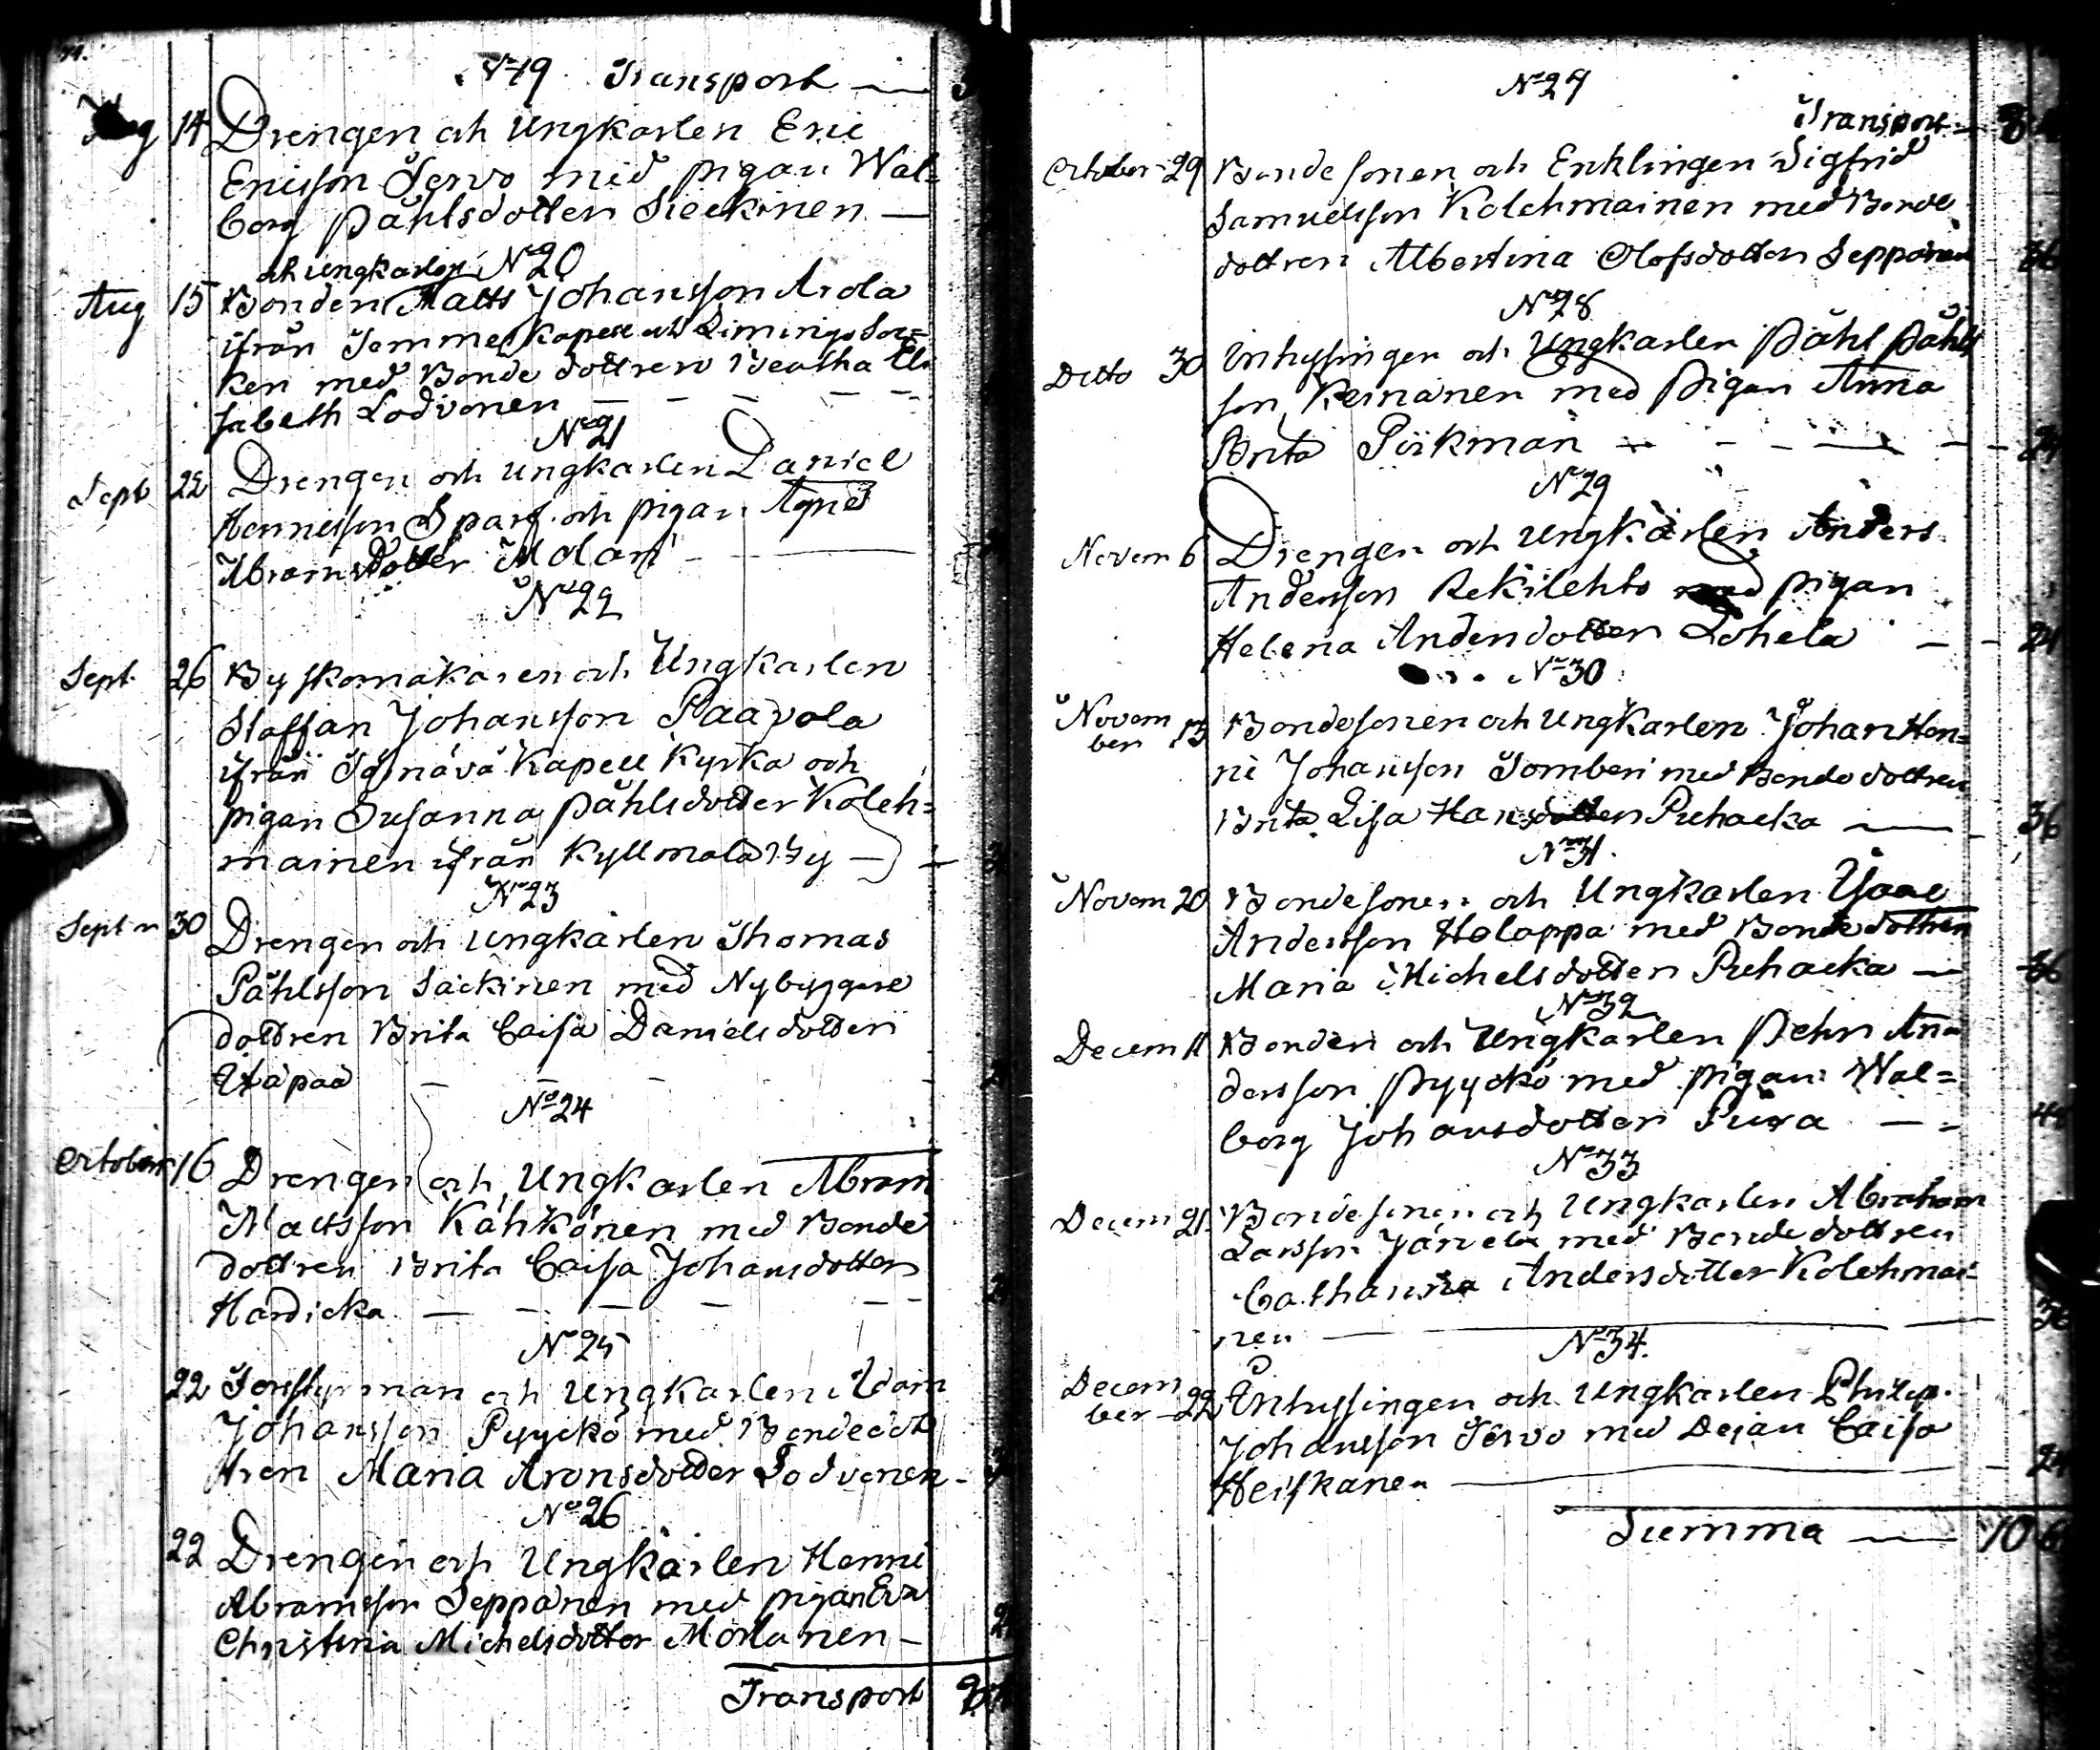 No 19 Transport
Aug 14 Drengen och Ungkarlen Eric
Ericsson Servo med pigan Wal=
borg Påhlsdotter Sieckinen
och ungkarlen No 20
Aug 15 Bonden Matts Johansson Arola
ifrån Temmes Kapell och Limingo Soc=
ken med Bonde dottren Beatha Eli
sabeth Lodvonen
No 21
Sept 22 Drengen och ungkarlen Daniel
Hennicsson Sparf och pigan Agnes
Abramsdotter Molari
No 22
Sept. 26 By skomakaren och Ungkarlen
Staffan Johansson Paavola
ifrån Säsnävä Kapell Kyrka och
pigan Susanna Påhlsdotter Koleh=
mainen ifrån Kyllmälä By
No 23
Sept 30 Drengen och ungkarlen Thomas
Påhlsson Säckinen med Nybyggare
dottren Brita Caisa Danielsdotter
Ätäpää
No 24
October 16 Drengen och Ungkarlen Abram
Mattsson Kähkönen med Bonde
dottren Brita Caisa Johansdotter
Hardicka
No 25
22 Torstyrman och Ungkarlen Adam
Johansson Pyyckö med Bondedot
tren Maria Aronsdotter Lodvonen
No 26
22 Drengen och Ungkarlen Henric
Abramsson Seppänen med pigan Eva
Christina Michelsdotter Moilanen
Transport
No 27
Transport
October 29 Bonde sonen och Enklingen Sigfrid
Samuelsson Kolehmainen med Bonde
dottren Albertina Olofsdotter Seppänen 36
No 28
Ditto 30 Inhysingen och Ungkarlen Påhl Påhls
son Keinänen med Pigan Anna
Brita Pürkman 24
No 29
Novem 6 Drengen och Ungkarlen Anders
Andersson Rekilehto med pigan
Helena Andersdotter Lohela 24
No 30
Novem
ber 13 Bondesonen och Ungkarlen Johan Hen=
ric Johansson Tomberi med Bonde dottren
Brita Lisa Hansdotter Puhacka 36
No 31
Novem 20 Bondesonen och Ungkarlen Isaac
Andersson Holappa med Bonde dottren
Maria Michelsdotter Puhacka 36
No 32
Decem 11 Bonden och Ungkarlen Pehr An
dersson Pyyckö med pigan Wal=
borg Johansdotter Pura
No 33
Decem 21 Bondesonen och Ungkarlen Abraham
Larsson Järvelä med Bonde dottren
Catharina Andersdotter Kolehmai=
nen 36
No 34.
Decem
ber 22 Inhysingen och Ungkarlen Philip
Johansson Servo med Pigan Caisa
Heiskanen 24
Summa 106